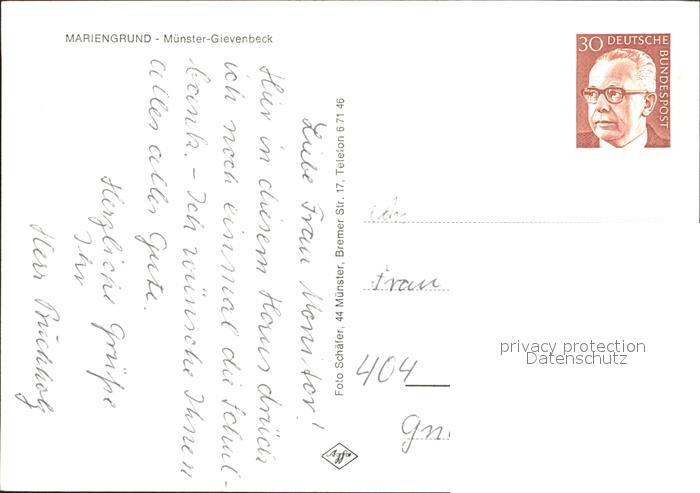 MARIENGRUND - Münster-Gievenbeck
30 DEUTSCHE
BUNDESPOST
Liebe Frau Monitor!
Hier in diesem Haus drück
ich noch einmal die Schul-
bank. - Ich wünsche Ihnen
alles alles Gute.
Herzliche Grüße
Ihr
Herr Buchholz
Foto Schäfer, 44 Münster, Bremer Str. 17, Telefon 6 71 46
Frau
404
privacy protection
Datenschutz